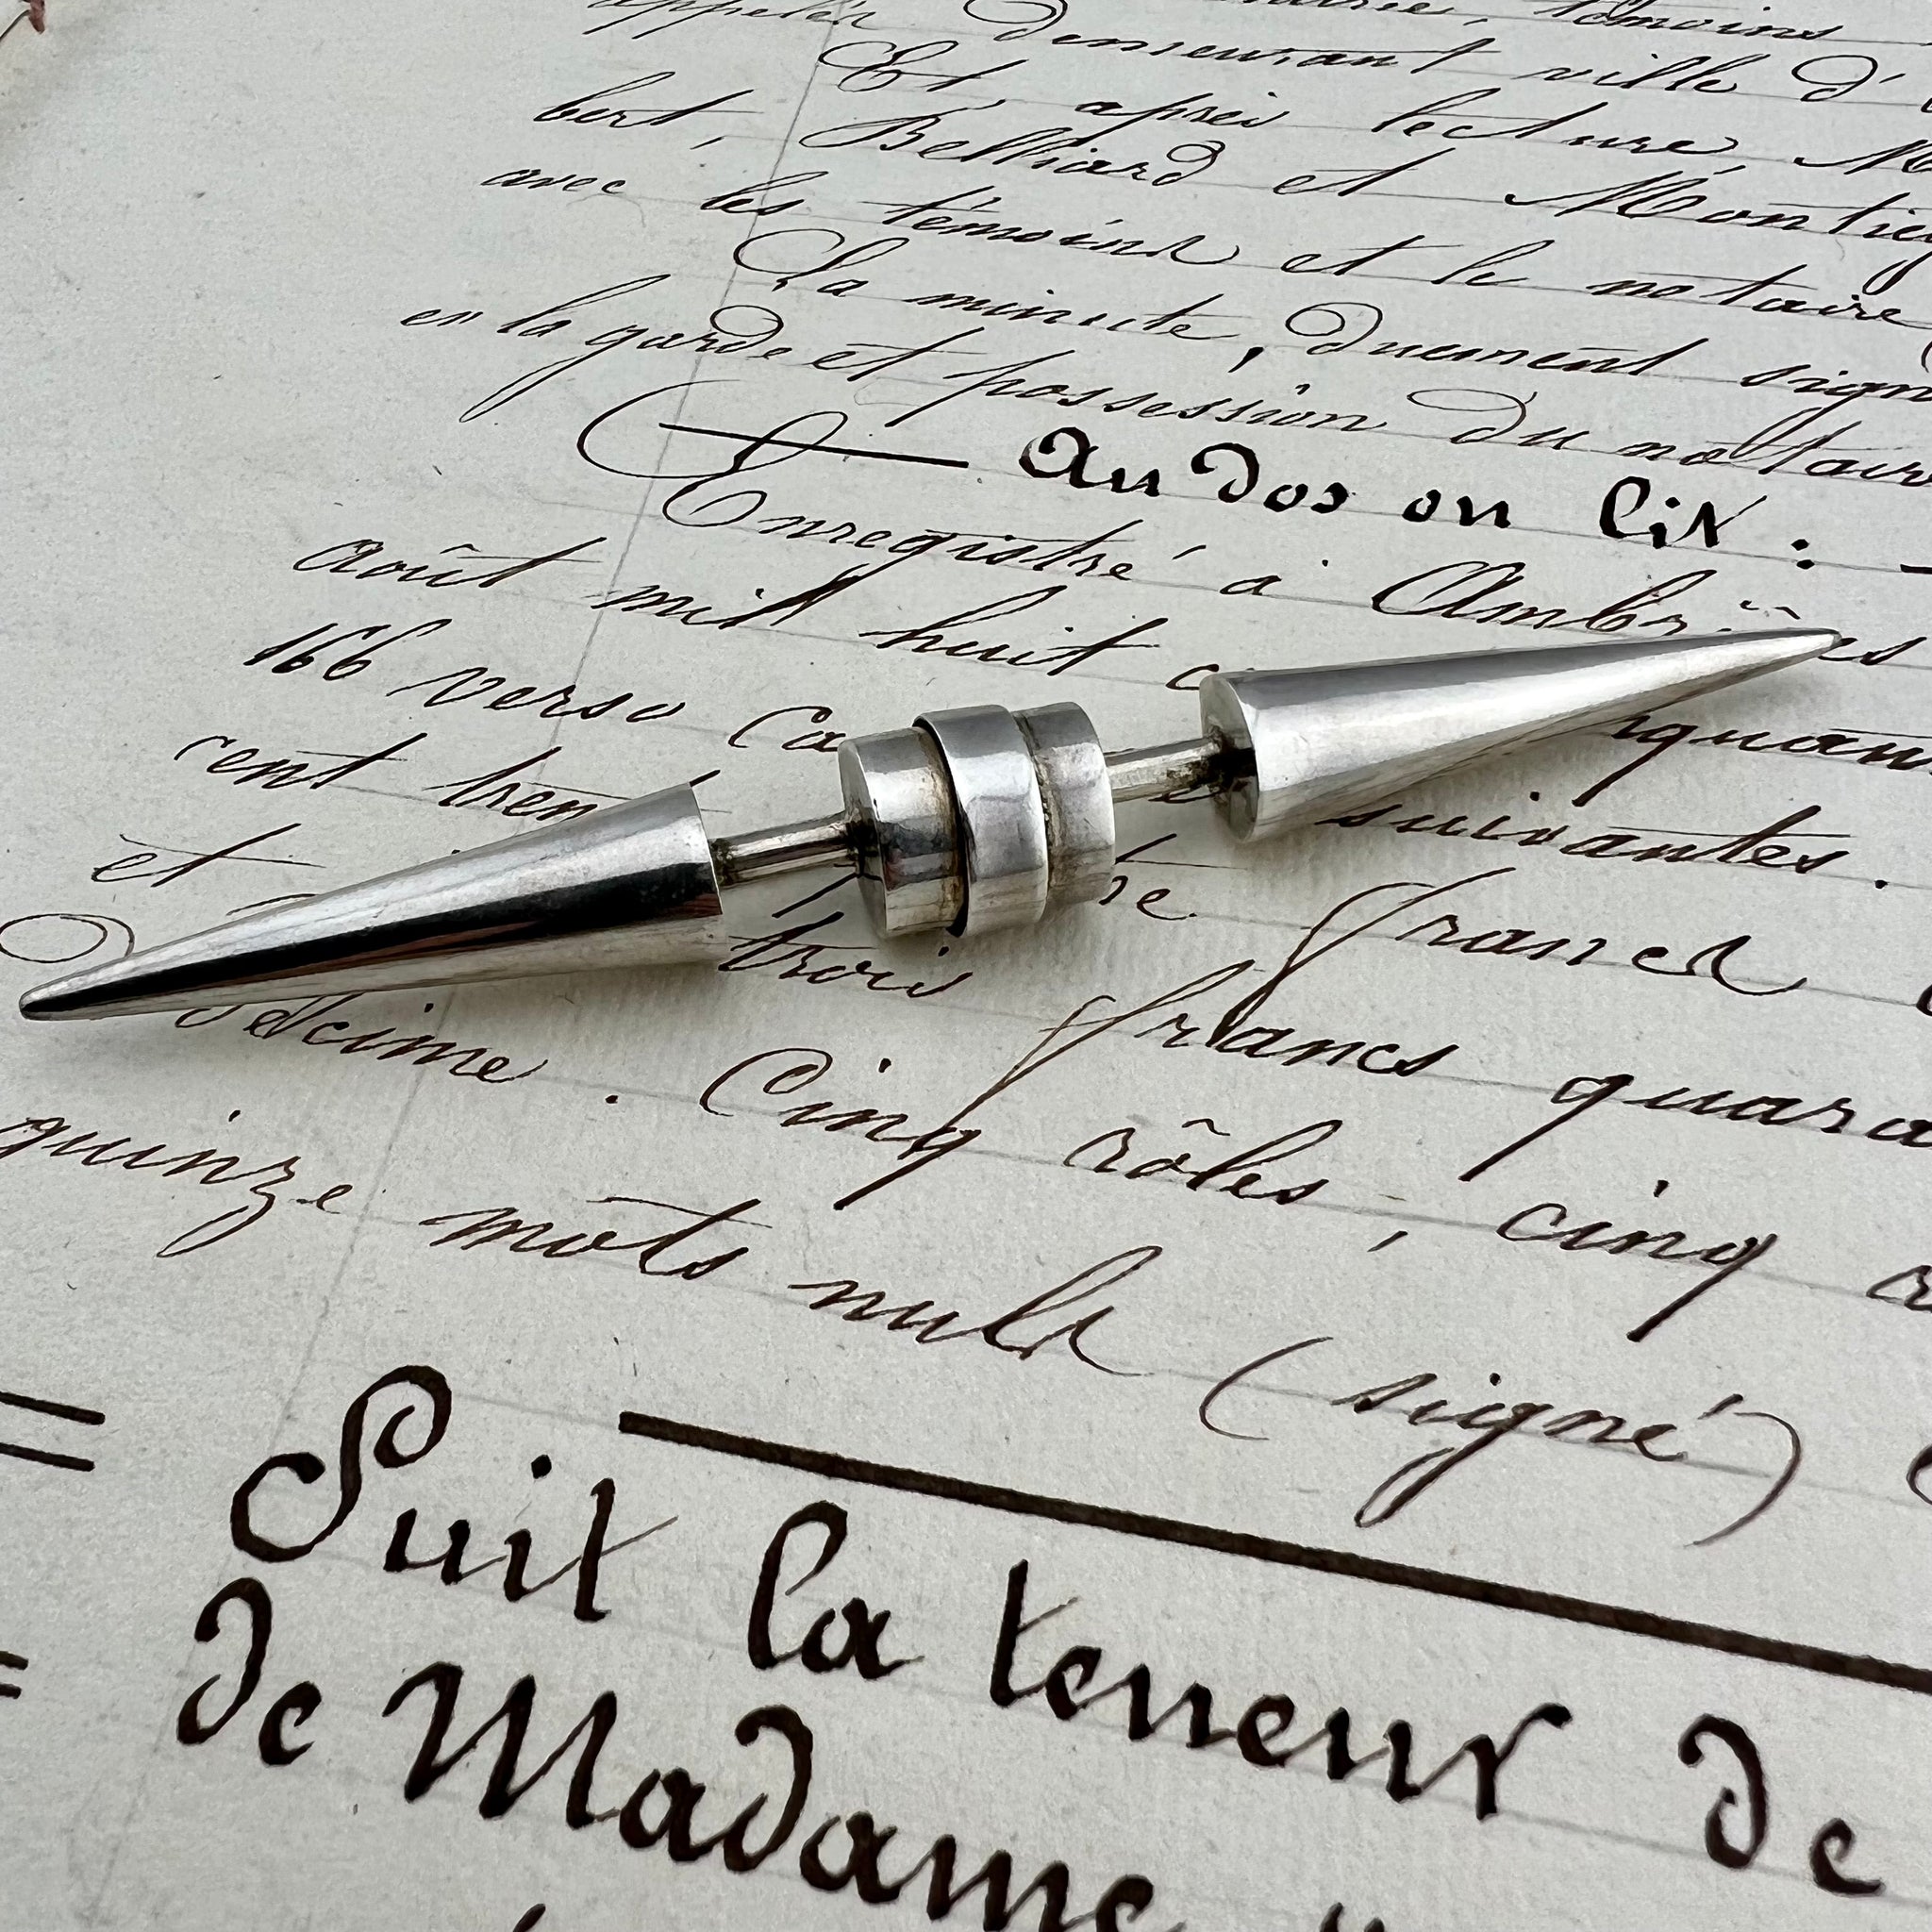 appelés demeurant témoins
Et, après lecture, ville d'
bert, Belliard et Montieg
avec les témoins et le notaire
La minute, duement sign
en la garde et possession du notair
Au dos on lit :
Enregistré à Ambrières
août mil huit c
166 verso Ca quan
cent tren suivantes.
et francs
trois francs quara
Décime. Cinq rôles, cinq
quinze mots nuls (signé)
Suit la teneur de
de Madame